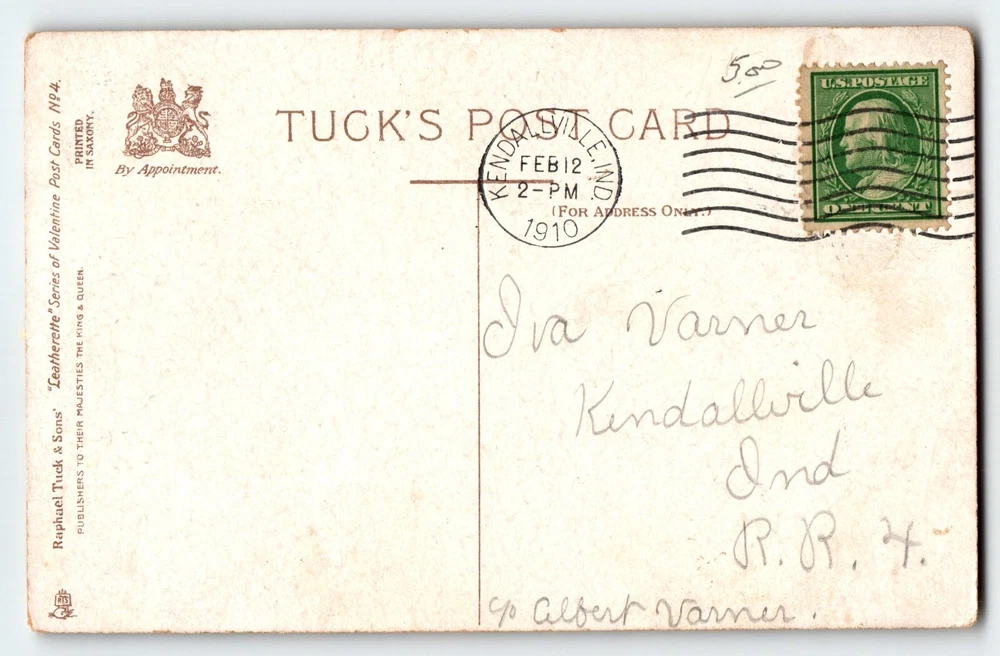 5.00
U.S. POSTAGE
ONE CENT
TUCK'S POST CARD
By Appointment.
PRINTED
IN SAXONY.
KENDALLVILLE, IND.
FEB 12
2-PM
1910
(FOR ADDRESS ONLY.)
Raphael Tuck & Sons' "Leatherette" Series of Valentine Post Cards Nº 4.
PUBLISHERS TO THEIR MAJESTIES THE KING & QUEEN.
Iva Varner
Kendallville
Ind
R. R. 4.
c/o Albert Varner.